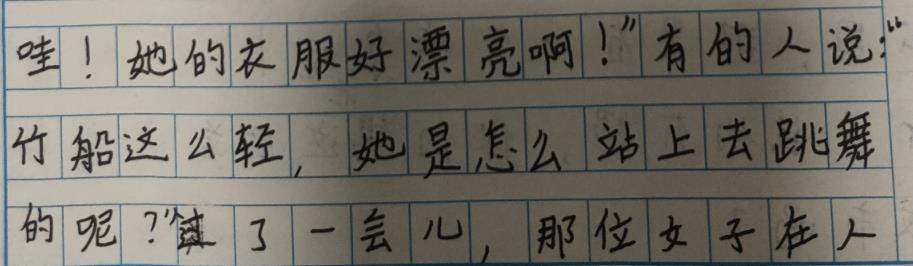 哇！她的衣服好漂亮啊！”有的人说：“
竹船这么轻，她是怎么站上去跳舞
的呢？”过了一会儿，那位女子在人